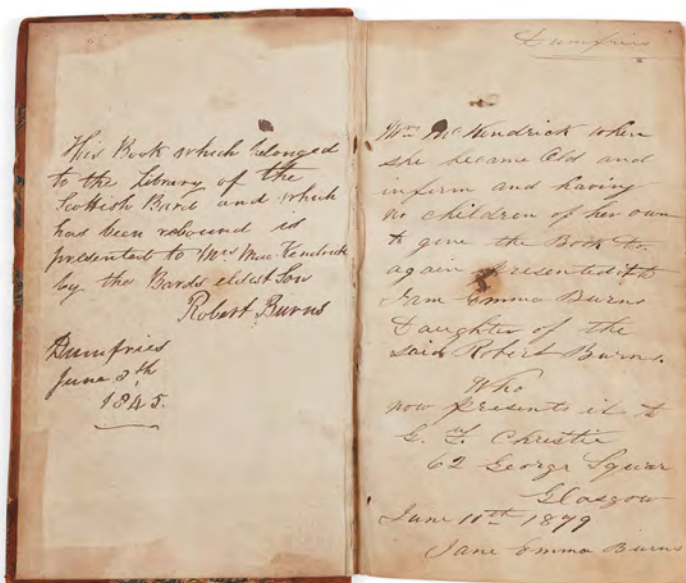 His Book which belonged
to the Library of the
Scottish Bard and which
has been rebound is
presented to Mrs Mac Kendrick
by the Bards eldest Son
Robert Burns
Dumfries
June 3th
1845.
Dumfries
Mrs McKendrick when
she became Old and
infirm and having
no children of her own
to give the Book to.
again presented it to
Jane Emma Burns
Daughter of the
said Robert Burns.
Who
now presents it to
G. Christie
62 George Squar
Glasgow
June 11th 1879
Jane Emma Burns